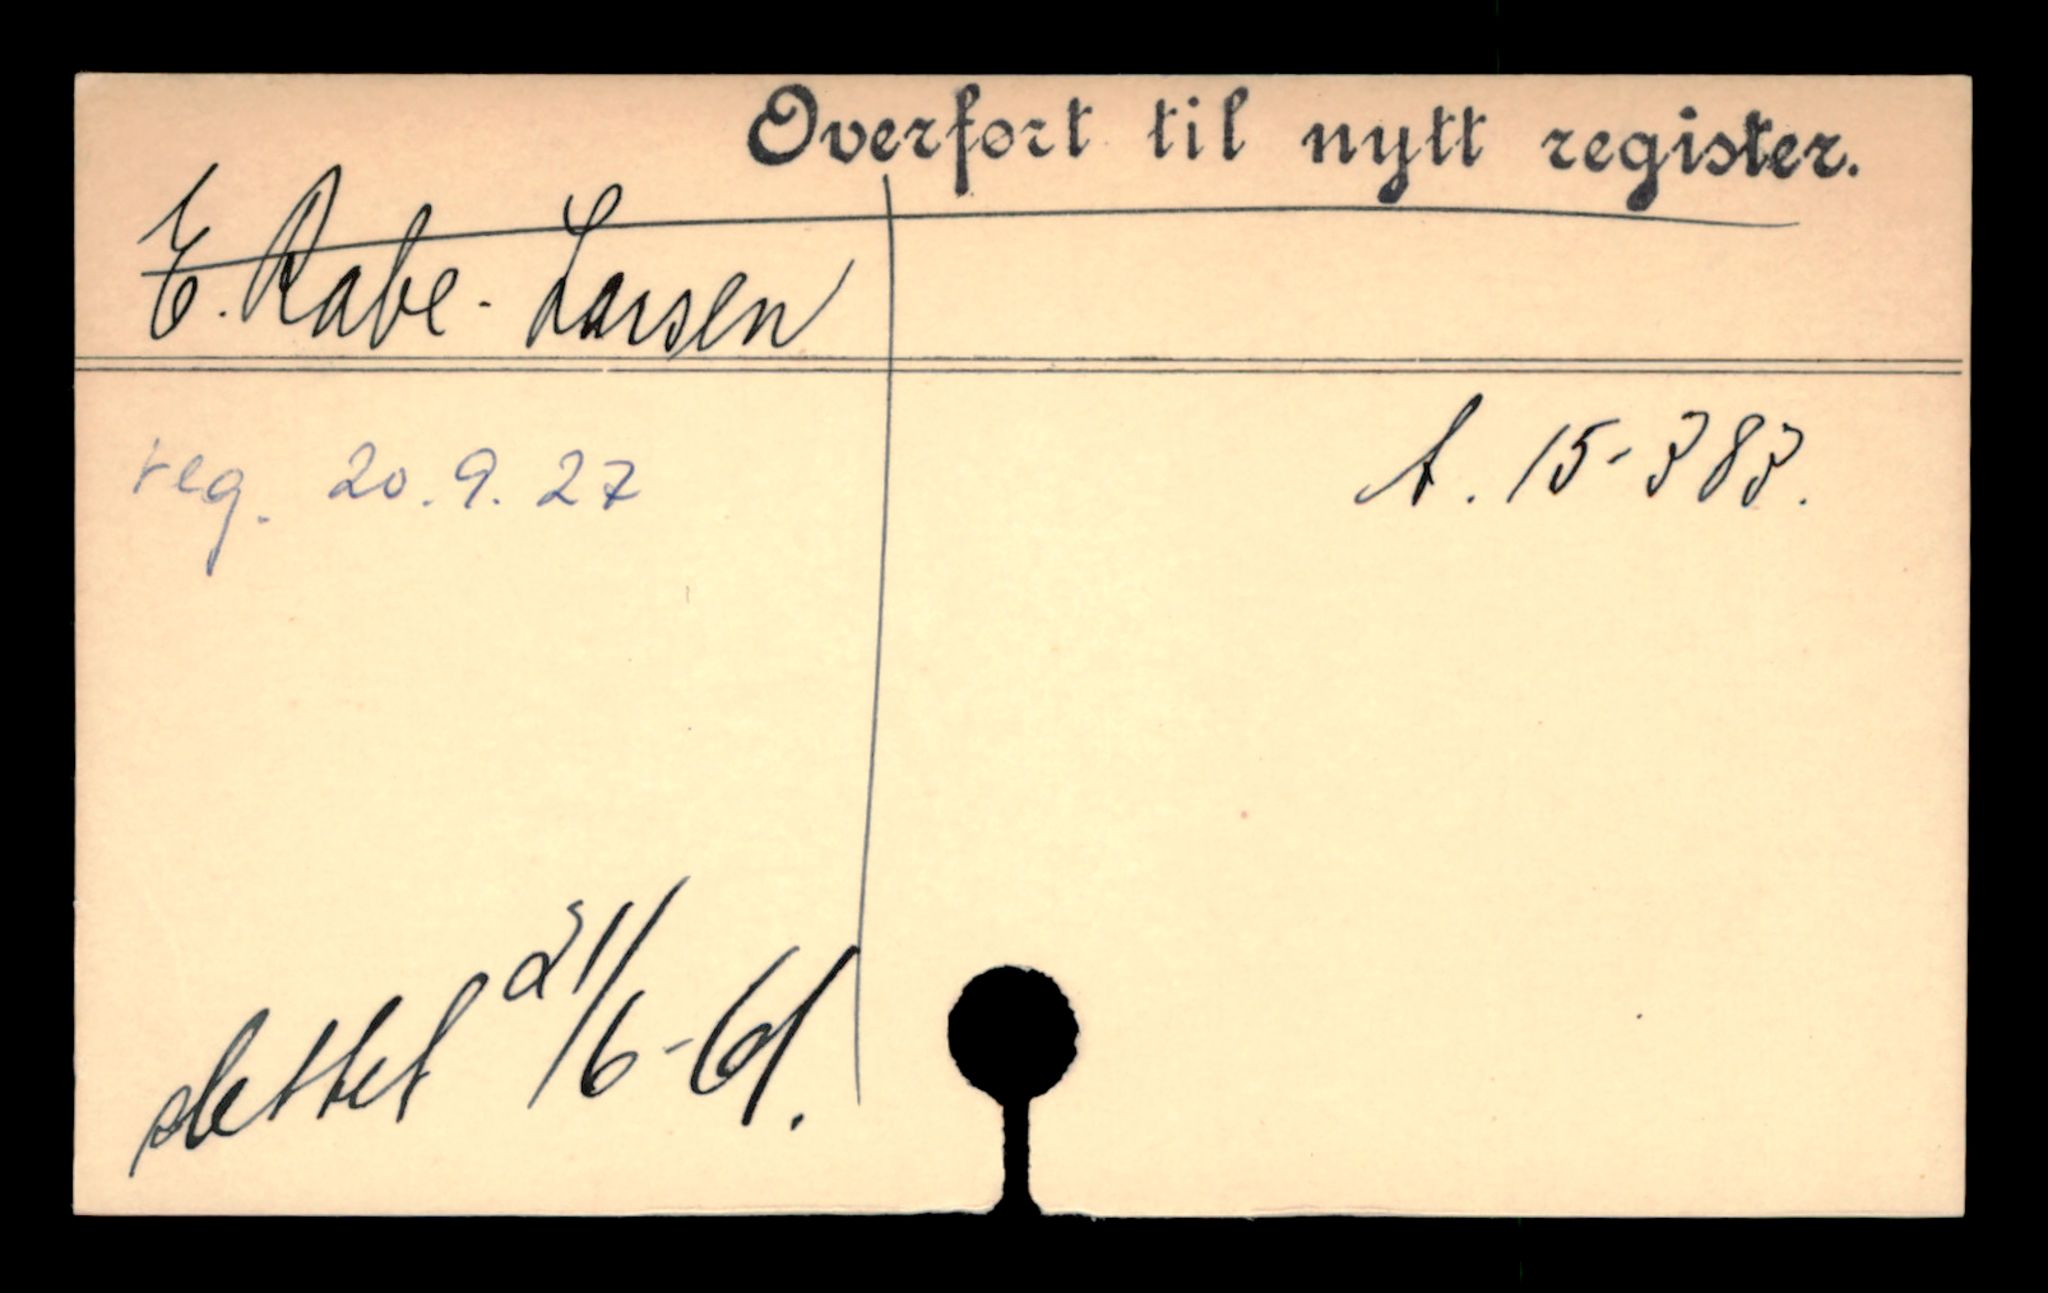 Overført til nytt register.
E. Rabe-Larsen
reg. 20.9.27
A. 15-383.
slettet 21/6-61.